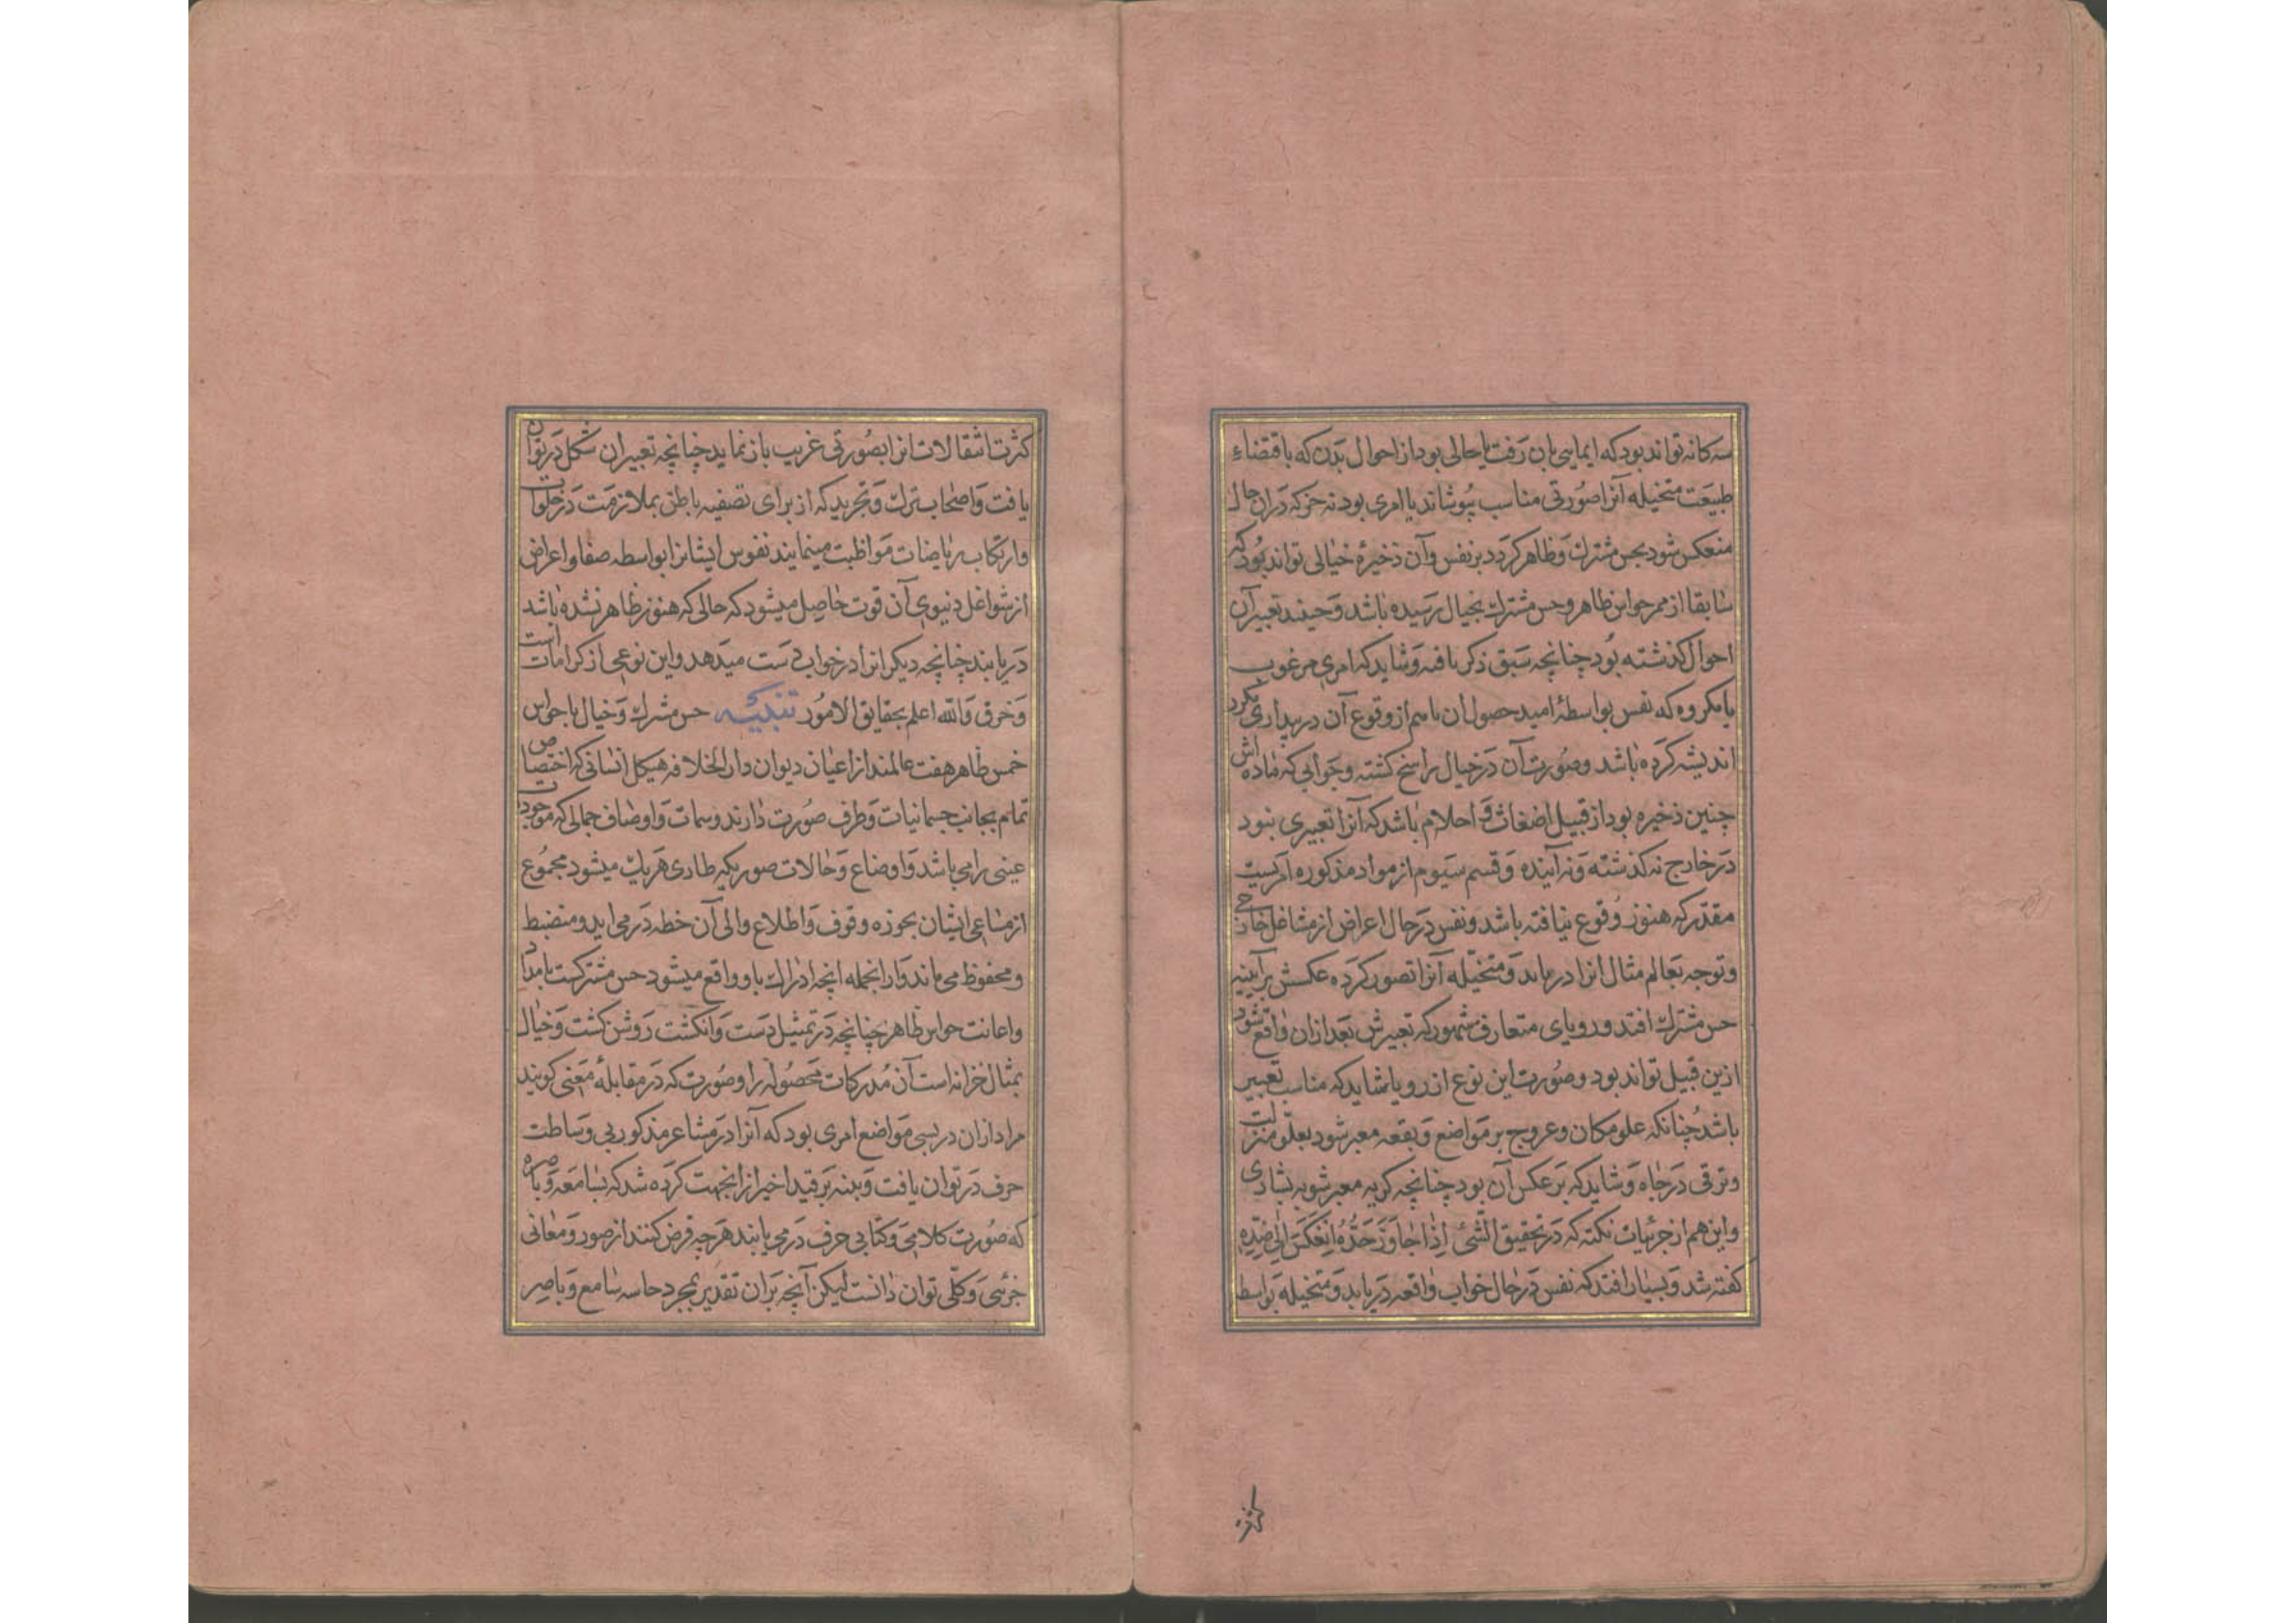 سه کانه تواند بود که ایمایی بان رفت یا حالی بود از احوال بدن که باقتضاء
طبیعت متخیله آنرا صورتی مناسب پوشاند یا امری بود نه جز که دران حال
منعکس شود بحس مشترك وظاهر کردد بر نفس وآن ذخیرهٔ خیالی تواند بود که
سابقا از ممر حواس ظاهر وحس مشترك بخیال رسیده باشد وحینئذ تعبیر آن
احوال کذشته بود چنانچه سبق ذکر یافته وشاید که امری مرغوب
یا مکروه که نفس بواسطهٔ امید حصول ان یا بیم از وقوع آن در بیداری فکر
اندیشه کرده باشد وصورت آن در خیال راسخ کشته وخوابی که ماده اش
چنین ذخیره بود از قبیل اضغاث و احلام باشد که آنرا تعبیری نبود
در خارج نه کذشته ونه آینده وقسم سیوم از مواد مذکوره امریست
مقدر که هنوز وقوع نیافته باشد ونفس در حال اعراض از مشاغل خارجی
وتوجه بعالم مثال انرا دریابد ومتخیله آنرا تصور کرده عکسش بر آیینه
حس مشترك افتد ورویای متعارف مشهور که تعبیرش بعد ازان واقع شود
ازین قبیل تواند بود وصورت این نوع از رویا شاید که مناسب تعبیر
باشد چنانکه علو مکان وعروج بر مواضع وبقعه معبر شود بعلو منزلت
وترقی در جاه وشاید که بر عکس آن بود چنانچه کریه معبر شو به بشادی
واین هم از جزئیات نکته که در تحقیق الشئ اذا جاوز حده انعکس الی ضده
کفته شد وبسیار افتد که نفس در حال خواب واقعه دریابد ومتخیله بواسطه
کثرت
کثرت انتقالات انرا بصورتی غریب باز نماید چنانچه تعبیر ان شکل در توان
یافت واصحاب ترك وتجرید که از برای تصفیه باطن بملازمت در خلوات
وارتکاب ریاضات مواظبت مینمایند نفوس ایشانرا بواسطه صفا واعراض
از شواغل دنیوی آن قوت حاصل میشود که حالی که هنوز ظاهر نشده باشد
دریابند چنانچه دیکر انرا در خواب دست میدهد واین نوعی از کرامات است
وخرق والله اعلم بحقایق الامور تنبیه حس مشترك وخیال با حواس
خمس ظاهر هفت عاملند از اعیان دیوان دار الخلافه هیکل انسانی که اختصاص
تمام بجانب جسمانیات وطرف صورت دارند وسمات واوصاف جمالی که موجودات
عینی را می باشد واوضاع وحالات صوریکه طاری هر یك میشود مجموع
از مساعی ایشان بحوزه وقوف واطلاع والی آن خطه در می اید ومنضبط
ومحفوظ می ماند وازانجمله انچه ادراك باو واقع میشود حس مشترکست بامداد
واعانت حواس ظاهر چنانچه در تمثیل دست وانکشت روشن کشت وخیال
بمثال خزانه است آن مدرکات محصوله را وصورت که در مقابلهٔ معنی کویند
مراد ازان در بسی مواضع امری بود که آنرا در مشاعر مذکور بی وساطت
حرف در توان یافت وتنبیه بر قید اخیر ازانجهت کرده شد که بسامعه وباصره
که صورت کلامی وکتابی حرف در می یابند هر چه فرض کنند از صور ومعانی
جزئی وکلی توان دانست لیکن آنچه بران تقدیر بمجرد حاسه سامع وباصر